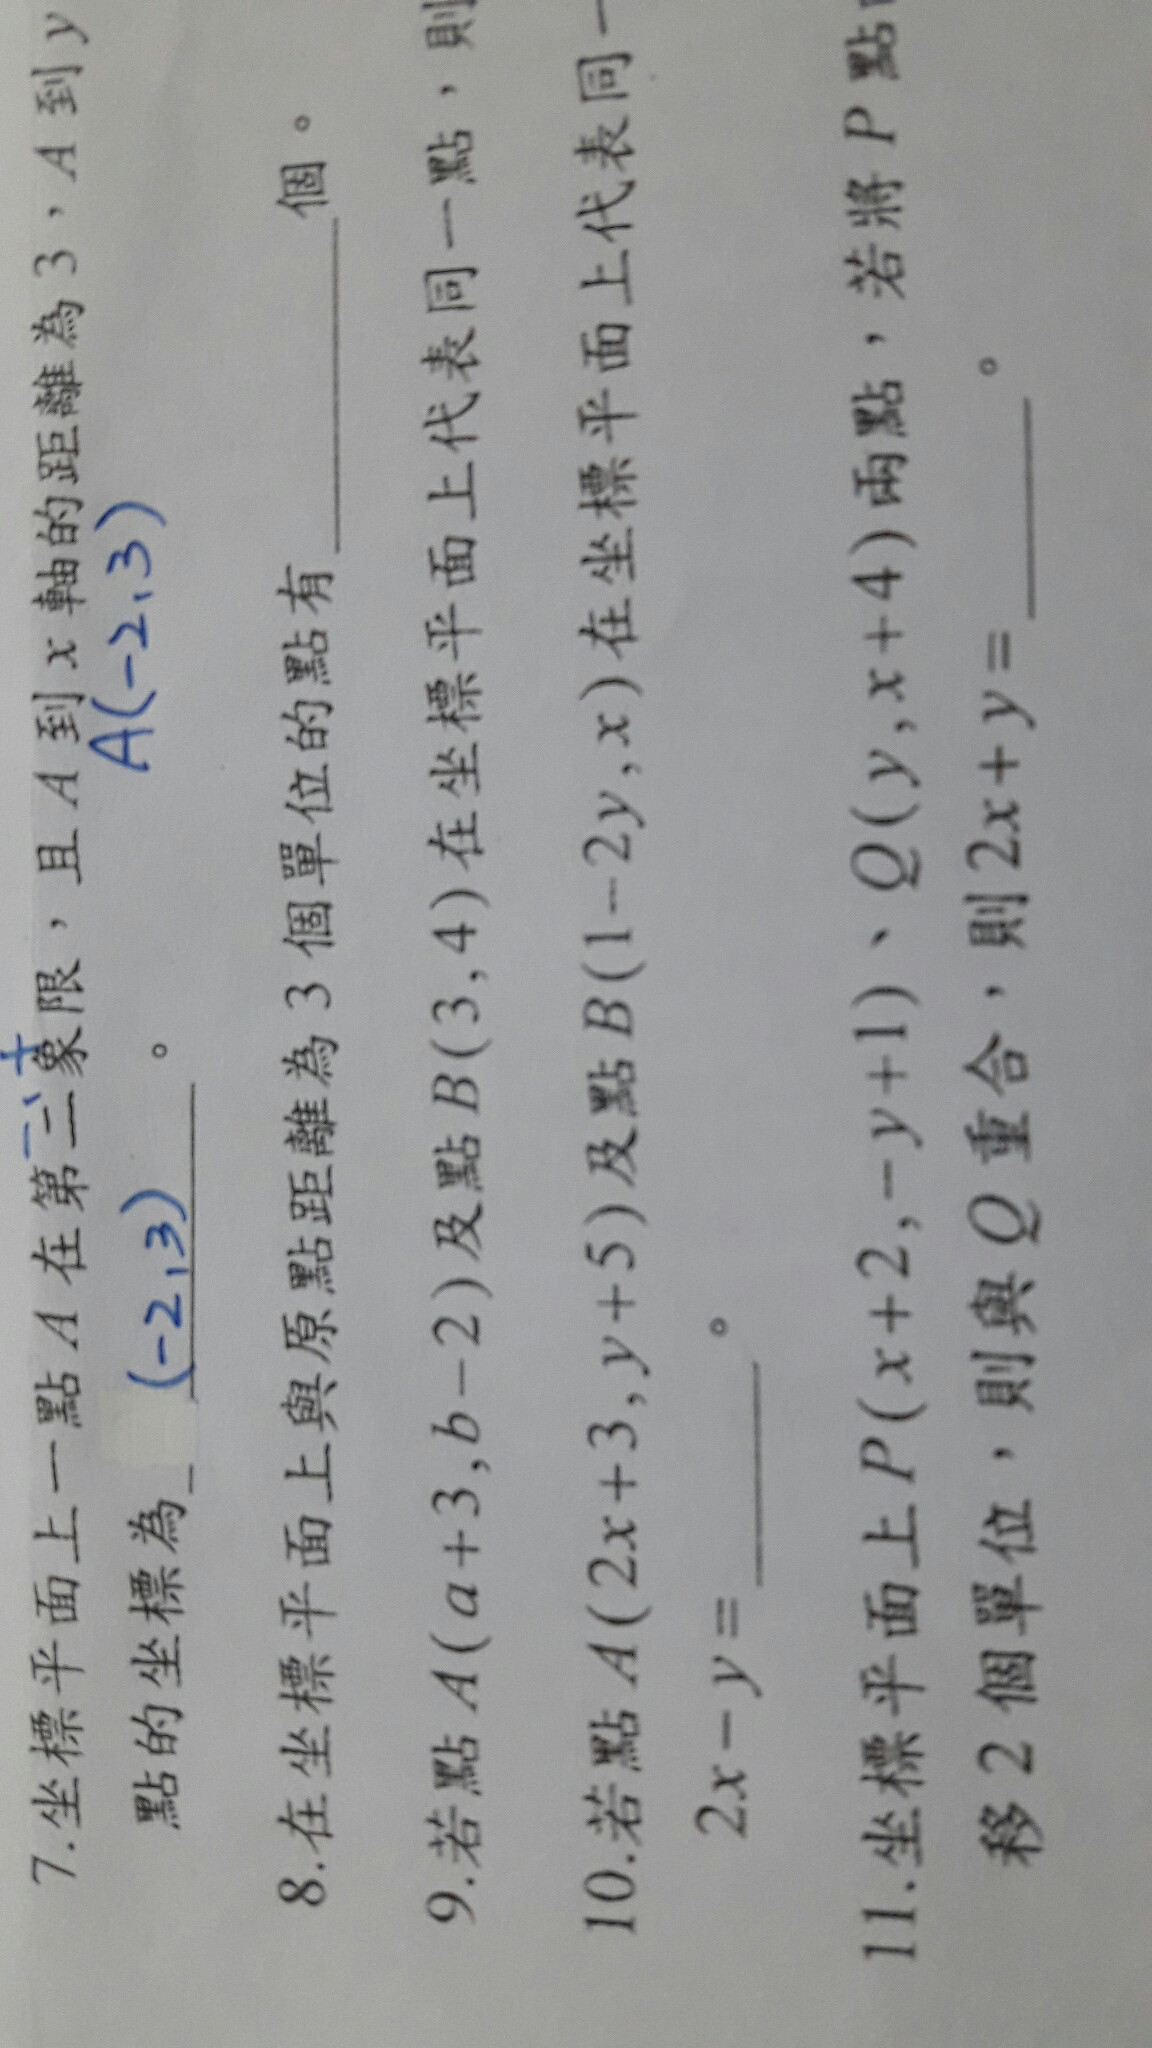 7.坐標平面上一點 A 在第二象限，且 A 到 x 軸的距離為 3，A 到 y
A(-2,3)
點的坐標為 (-2,3) 。
8.在坐標平面上與原點距離為 3 個單位的點有 個。
9.若點 A(a+3,b-2)及點 B(3,4)在坐標平面上代表同一點，則
10.若點 A(2x+3,y+5)及點 B(1-2y,x)在坐標平面上代表同一
2x-y= 。
11.坐標平面上 P(x+2,-y+1)、Q(y,x+4)兩點，若將 P 點
移 2 個單位，則與 Q 重合，則 2x+y= 。